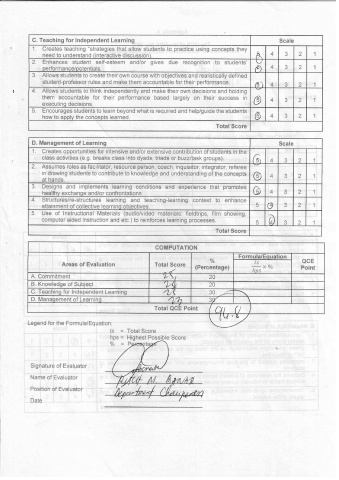 C. Teaching for Independent Learning Scale
1. Creates teaching strategies that allow students to practice using concepts they need to understand (interactive discussion). 5 4 3 2 1
2. Enhances student self-esteem and/or gives due recognition to students' performance/potentials. 5 4 3 2 1
3. Allows students to create their own course with objectives and realistically defined student-professor rules and make them accountable for their performance. 5 4 3 2 1
4. Allows students to think independently and make their own decisions and holding them accountable for their performance based largely on their success in executing decisions. 5 4 3 2 1
5. Encourages students to learn beyond what is required and help/guide the students how to apply the concepts learned. 5 4 3 2 1
Total Score
D. Management of Learning Scale
1. Creates opportunities for intensive and/or extensive contribution of students in the class activities (e.g. breaks class into dyads, triads or buzz/task groups). 5 4 3 2 1
2. Assumes roles as facilitator, resource person, coach, inquisitor, integrator, referee in drawing students to contribute to knowledge and understanding of the concepts at hands. 5 4 3 2 1
3. Designs and implements learning conditions and experience that promotes healthy exchange and/or confrontations. 5 4 3 2 1
4. Structures/re-structures learning and teaching-learning context to enhance attainment of collective learning objectives. 5 4 3 2 1
5. Use of Instructional Materials (audio/video materials: fieldtrips, film showing, computer aided instruction and etc.) to reinforces learning processes. 5 4 3 2 1
Total Score
COMPUTATION
Areas of Evaluation Total Score % (Percentage) Formula/Equation ts/hps × % QCE Point
A. Commitment 25 20
B. Knowledge of Subject 20
C. Teaching for Independent Learning 30
D. Management of Learning 30
Total QCE Point 94.8
Legend for the Formula/Equation:
ts = Total Score
hps = Highest Possible Score
% = Percentage
Signature of Evaluator
Name of Evaluator
Position of Evaluator Department Chairperson
Date